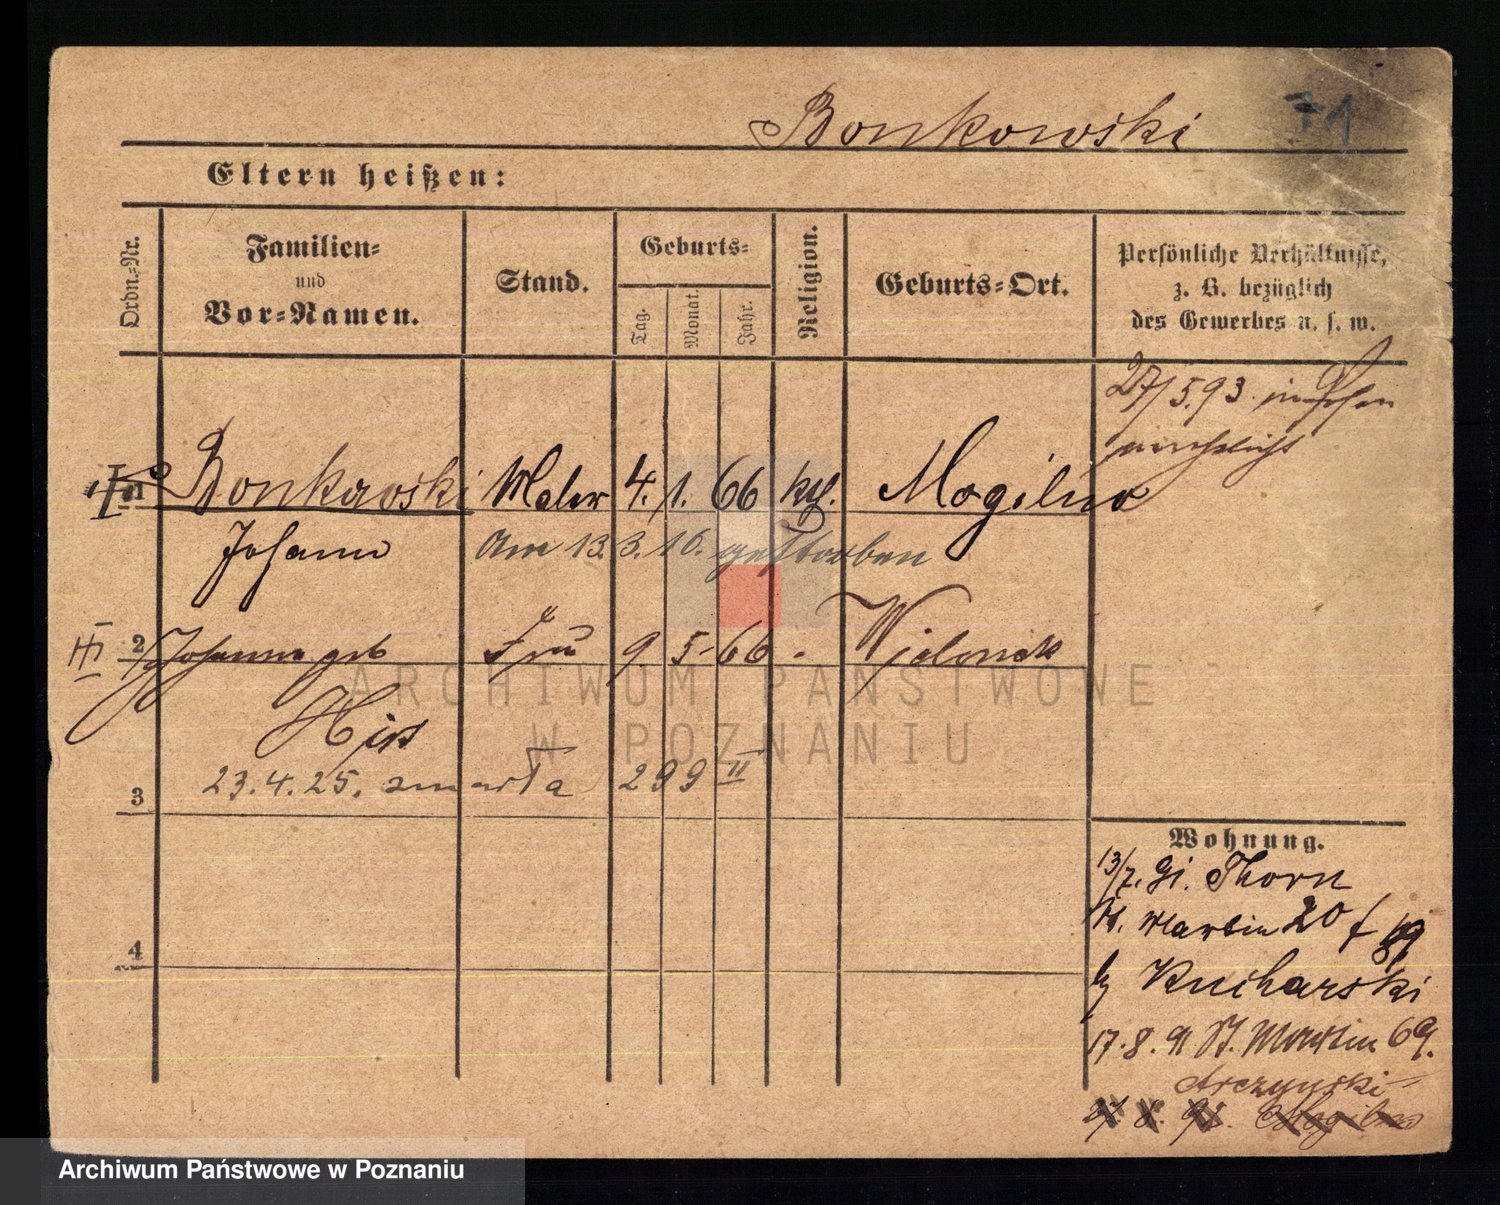 Bonkowski 71
Eltern heißen:
Ordn.-Nr.
Familien-
und
Vor-Namen.
Stand.
Geburts-
Tag.
Monat.
Jahr.
Religion.
Geburts-Ort.
Persönliche Verhältnisse,
z. B. bezüglich
des Gewerbes u. s. w.
27/5.93. in Posen
I 1 Bonkowski Maler 4. 1. 66 kth. Mogilno
Johann am 13.3.16. gestorben
II 2 Johanna geb Frau 9. 5 - 66 - 
3 23.4.25. zmarła 299 II
4
Wohnung.
13/7. 91. Thorn
St. Martin 20
Kucharski
17.8.91 St. Martin 69.
27 8. 91. Mogilno
ARCHIWUM PAŃSTWOWE
W POZNANIU
Archiwum Państwowe w Poznaniu